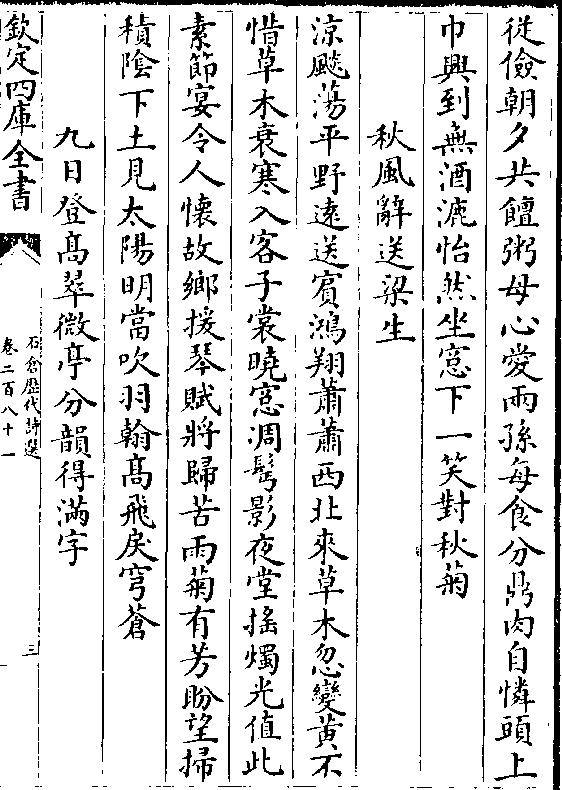 從儉朝夕共饘粥母心愛兩孫每食分鼎肉自憐頭上
巾興到無酒漉怡然坐窻下一笑對秋菊
秋風辭送梁生
涼飈蕩平野遠送賓鴻翔蕭蕭西北來草木忽變黄不
惜草木衰寒入客子裳曉窻凋髩影夜堂摇燭光值此
素節宴令人懷故鄉援琴賦將歸苦雨菊有芳盼望掃
積陰下土見太陽明當吹羽翰髙飛戾穹蒼
九日登髙翠微亭分韻得滿字
欽定四庫全書
石倉歴代詩選
卷二百八十一
三